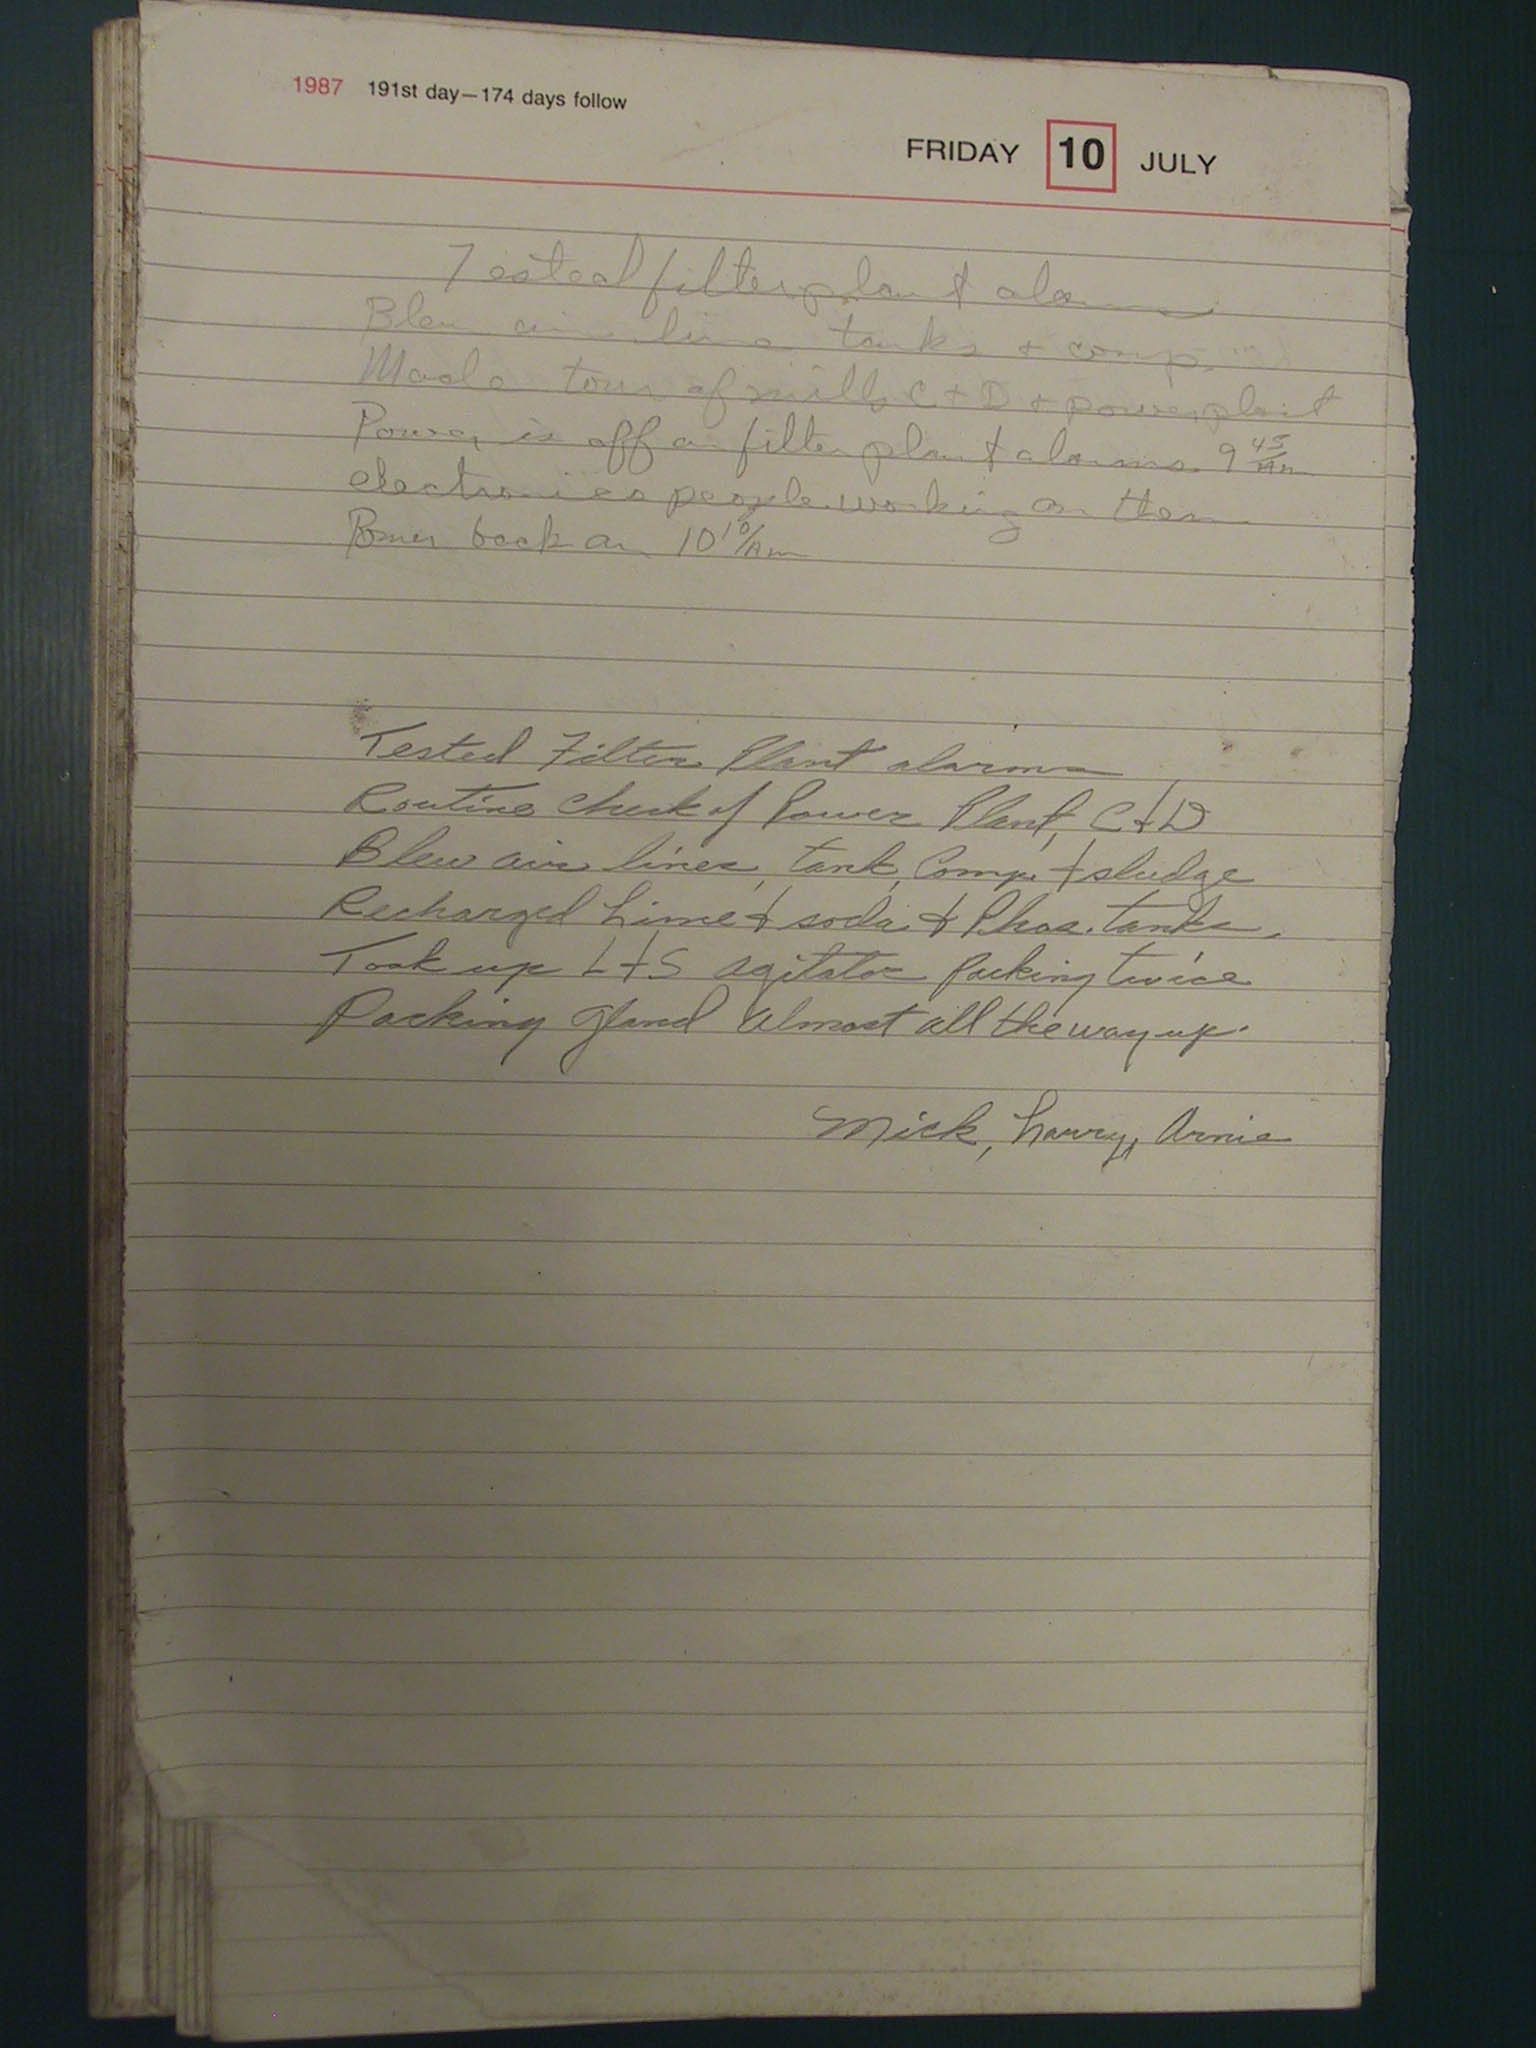 1987 191st day—174 days follow
FRIDAY 10 JULY
Tested filter plant alarms
Blew air lines tanks + comp.
Made tour of mills C + D + power plant
Power is off on filter plant alarms 9 45/Am
electronics people working on them
Power back on 10 10/Am
Tested Filter Plant alarms
Routine Check of Power Plant, C + D
Blew air lines, tank, Comp. + sludge
Recharged Lime + soda + Phos. tanks.
Took up L + S agitator packing twice
Packing gland almost all the way up.
Mick, Larry, Arnie